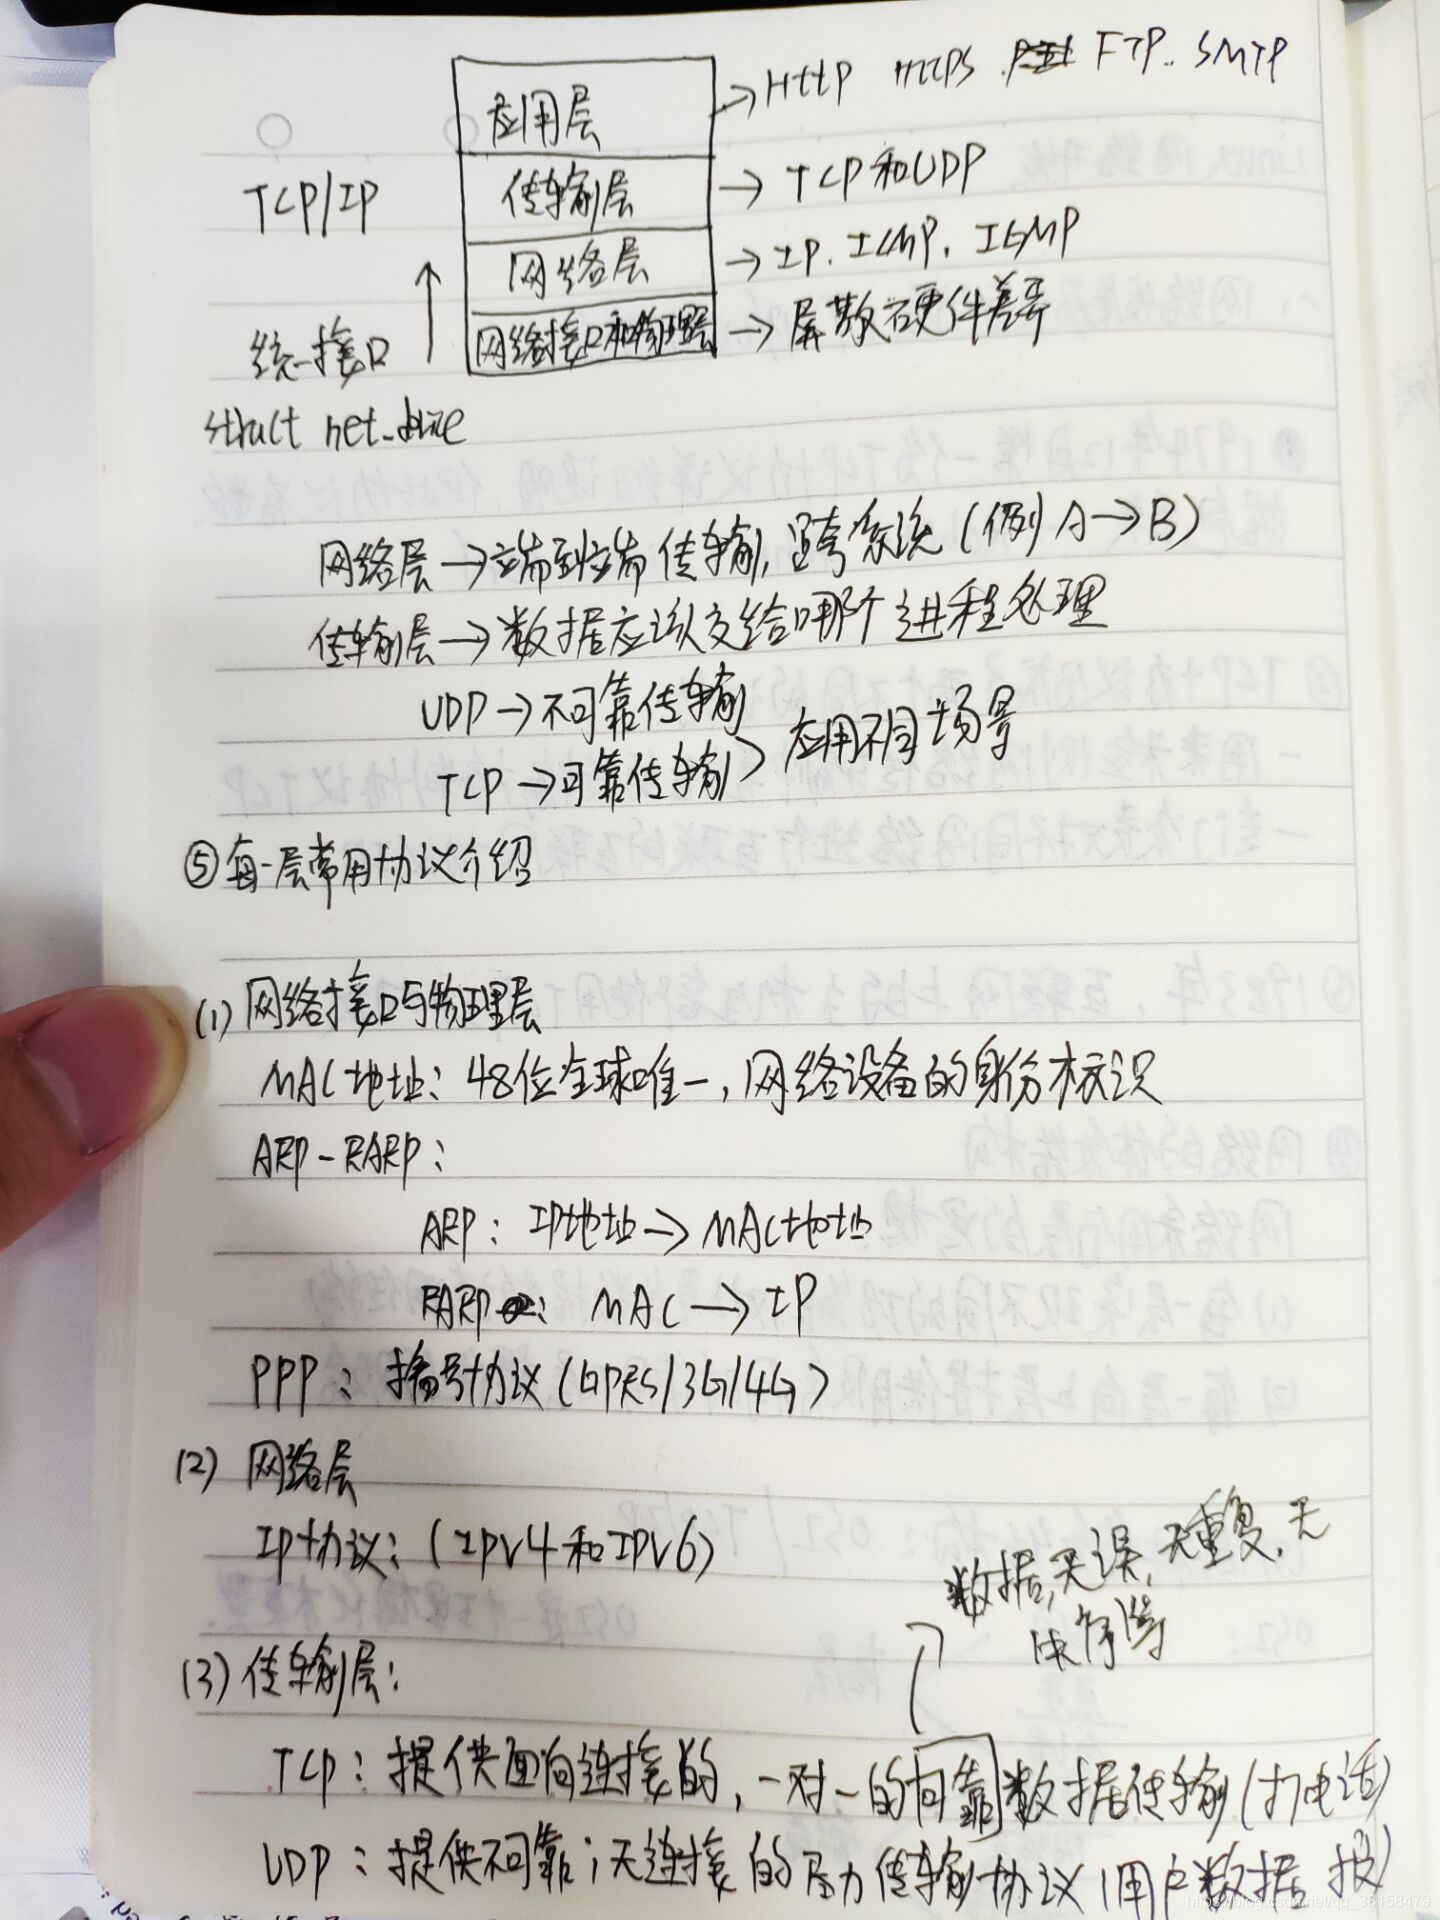 应用层 → Http https FTP.. SMTP
TCP/IP 传输层 → TCP和UDP
网络层 → IP. ICMP. IGMP
统一接口 ↑ 网络接口和物理层 → 屏蔽硬件差异
struct net_
网络层→端到端传输, 跨系统(例 A→B)
传输层→数据应该交给哪个进程处理
UDP→不可靠传输
TCP→可靠传输 > 应用不同场景
⑤每一层常用协议介绍
(1) 网络接口与物理层
MAC地址: 48位全球唯一, 网络设备的身份标识
ARP-RARP:
ARP: IP地址→MAC地址
RARP: MAC→IP
PPP: 拨号协议(GPRS/3G/4G)
(2) 网络层
IP协议: (IPV4和IPV6)
数据, 无误, 无重复, 无
序等
(3) 传输层:
TCP: 提供面向连接的, 一对一的可靠数据传输(打电话)
UDP: 提供不可靠;无连接的传输协议(用户数据报)
http://blog.csdn.net/qq_36158479